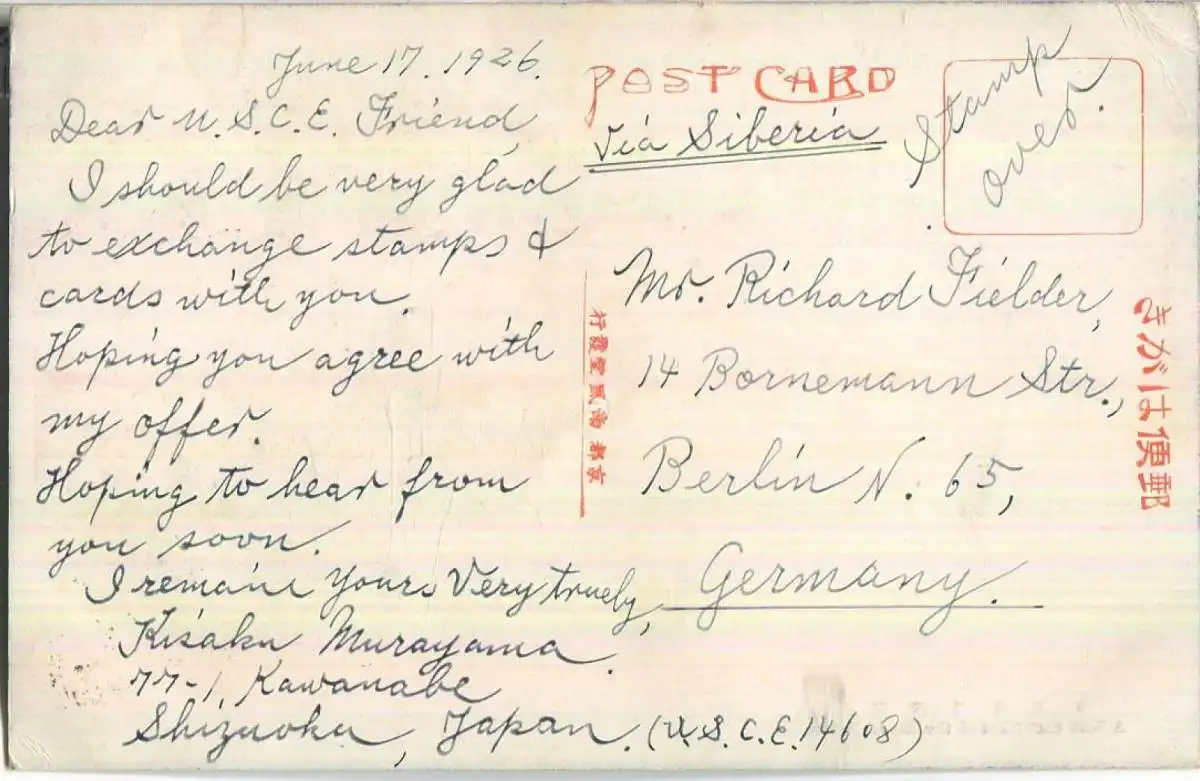 June 17. 1926.
Dear U.S.C.E. Friend,
I should be very glad
to exchange stamps &
cards with you.
Hoping you agree with
my offer.
Hoping to hear from
you soon.
I remain yours Very truely,
Kisaku Murayama.
77-1, Kawanabe
Shizuoka, Japan. (U.S.C.E. 14608)
POST CARD
Via Siberia
Stamp
over.
Mr. Richard Fielder,
14 Bornemann Str.,
Berlin N. 65,
Germany.
郵便はがき